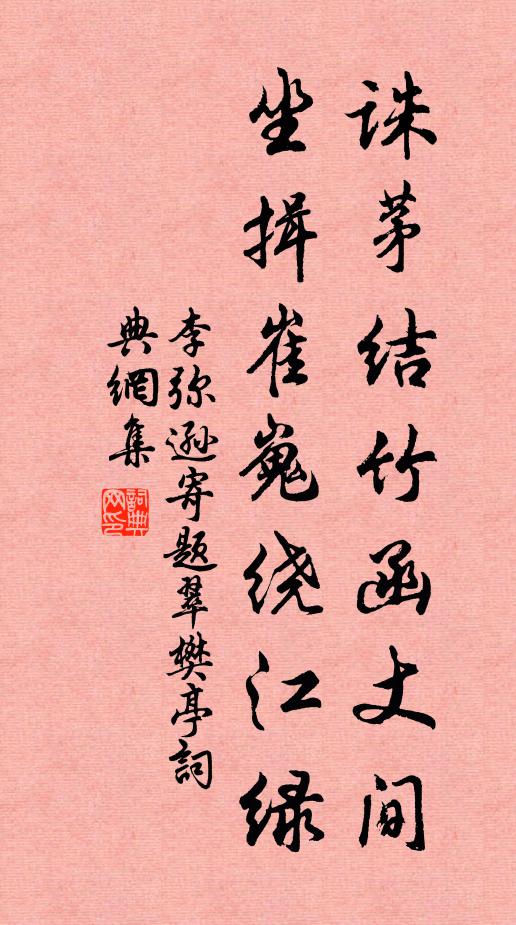 诛茅结竹函丈间
坐揖崔嵬绕江绿
李弥逊寄题翠樊亭詞
典網集
詞典网印